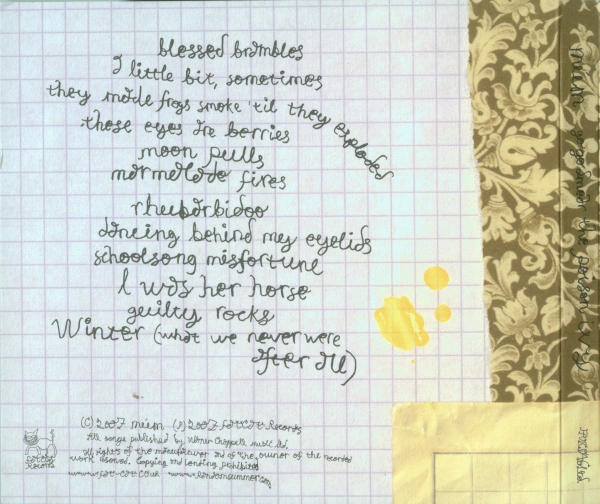 blessed brambles
A little bit, sometimes
they made frogs smoke 'til they exploded
these eyes are berries
moon pulls
marmalade fires
rhuubarbidoo
dancing behind my eyelids
schoolsong misfortune
I was her horse
guilty rocks
Winter (what we never were
after all)
(C) 2007 múm (P) 2007 FatCat Records
All songs published by Warner Chappell music ltd.
All rights of the manufacturer and of the owner of the recorded
work reserved. Copying and lending prohibited
www.fat-cat.co.uk www.randomsummer.com
fatcat
Records
múm